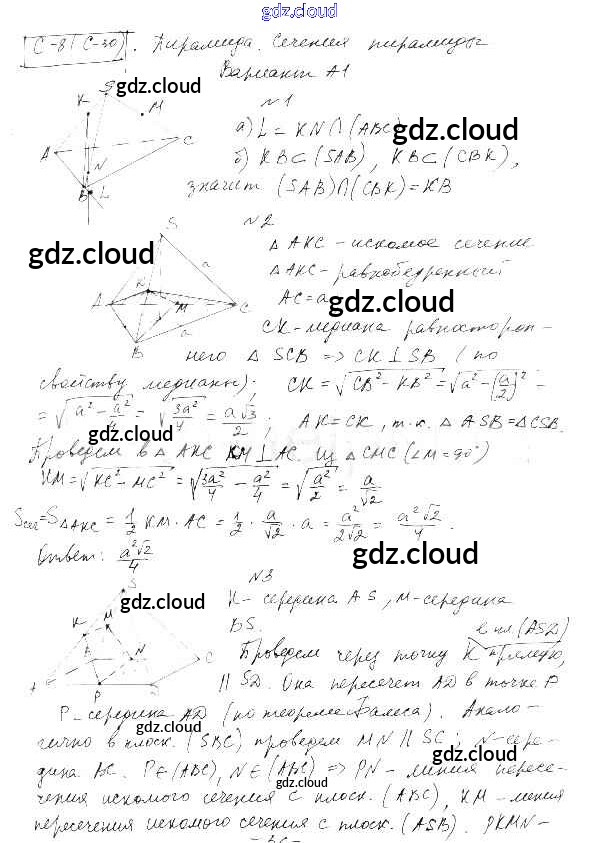 gdz.cloud
С-8 (С-30). Пирамида. Сечения пирамиды
gdz.cloud
Вариант А1
S
K
M
A
C
N
B
L
№1
а) L = KN ∩ (ABC)
gdz.cloud
б) KB ⊂ (SAB), KB ⊂ (CBK),
значит (SAB) ∩ (CBK) = KB
№2
S
a
K
A
M
C
B
a
gdz.cloud
△ AKC – искомое сечение
△ AKC – равнобедренный
AC = a
gdz.cloud
CK – медиана равносторон-
него △ SCB => CK ⊥ SB (по
свойству медианы). CK = √CB² - KB² = √a² - (a/2)² =
= √a² - a²/4 = √3a²/4 = a√3/2; AK = CK, т.к. △ ASB = △ CSB.
gdz.cloud
Проведем в △ AKC KM ⊥ AC. Из △ CMC (∠M = 90°)
KM = √KC² - MC² = √3a²/4 - a²/4 = √a²/2 = a/√2
Sсеч = S△AKC = 1/2 KM · AC = 1/2 · a/√2 · a = a²/2√2 = a²√2/4.
Ответ: a²√2/4
gdz.cloud
№3
S
gdz.cloud
K
M
N
C
A
P
K – середина AS, M – середина
BS.
в пл. (ASD)
Проведем через точку K прямую,
gdz.cloud
|| SD. Она пересечет AD в точке P
P – середина AD (по теореме Фалеса). Анало-
gdz.cloud
гично в плоск. (SBC) проведем MN || SC; N – сере-
дина BC. P ∈ (ABC), N ∈ (ABC) => PN – линия пересе-
gdz.cloud
чения искомого сечения с плоск. (ABC), KM – линия
пересечения искомого сечения с плоск. (ASB). PKMN –
gdz.cloud